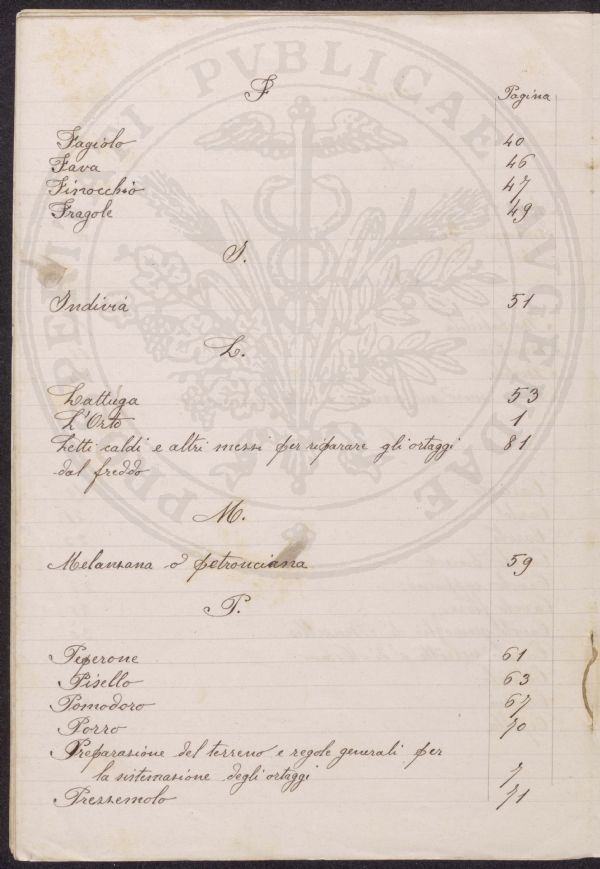 F
Pagina
Fagiolo 40
Fava 46
Finocchio 47
Fragole 49
I.
Indivia 51
L.
Lattuga 53
L'Orto 1
Letti caldi e altri mezzi per riparare gli ortaggi 81
dal freddo
M.
Melanzana o petronciana 59
P.
Peperone 61
Pisello 63
Pomodoro 67
Porro 70
Preparazione del terreno e regole generali per
la sistemazione degli ortaggi 7
Prezzemolo 71
PERPETVITATI PVBLICAE AVGENDAE